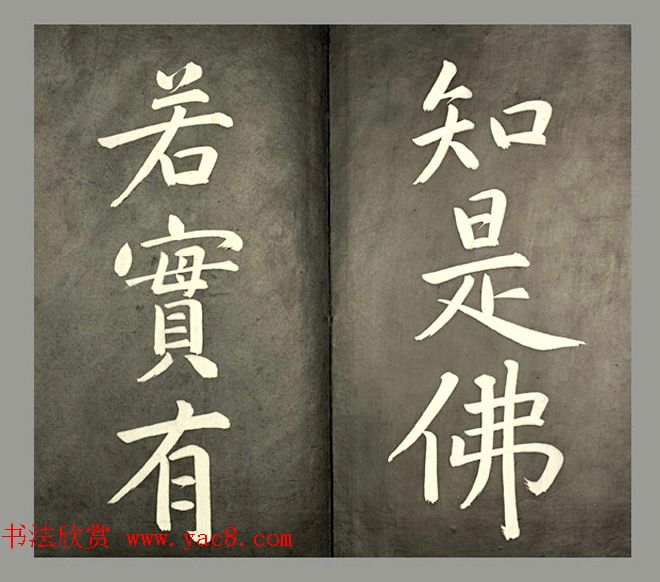 知是佛
若實有
书法欣赏 www.yac8.com